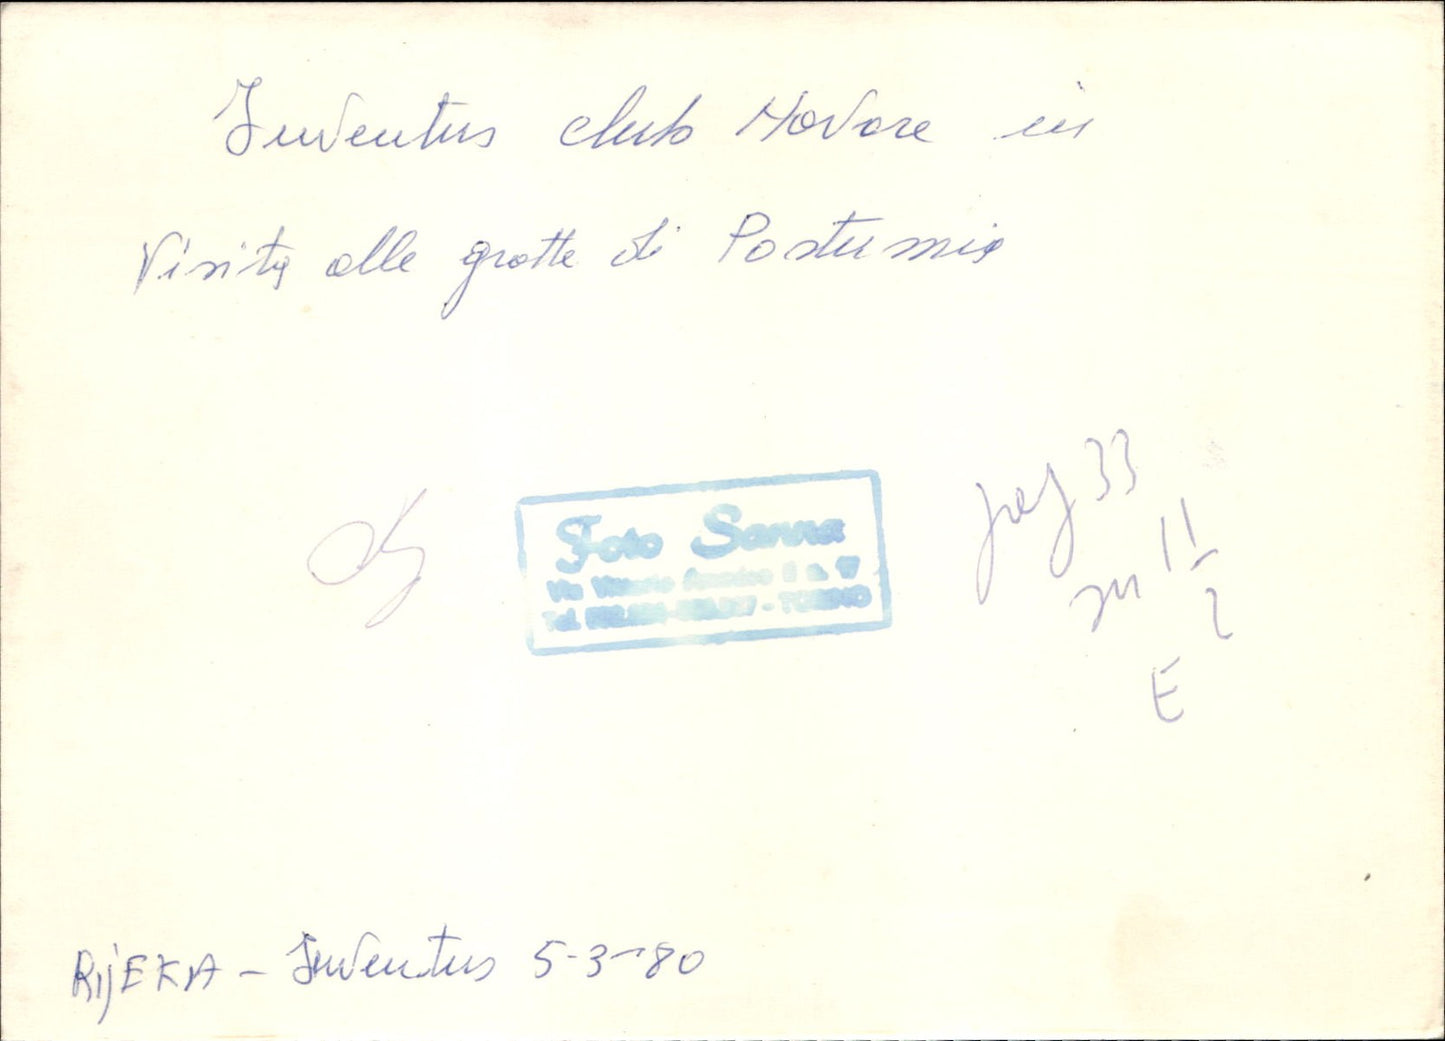 Juventus club Novara in
Visita alle grotte di Postumia
Foto Sanna
Via Vittorio Amedeo II n.
Tel. - TORINO
pag 33
11
2
E
RIJEKA - Juventus 5-3-80